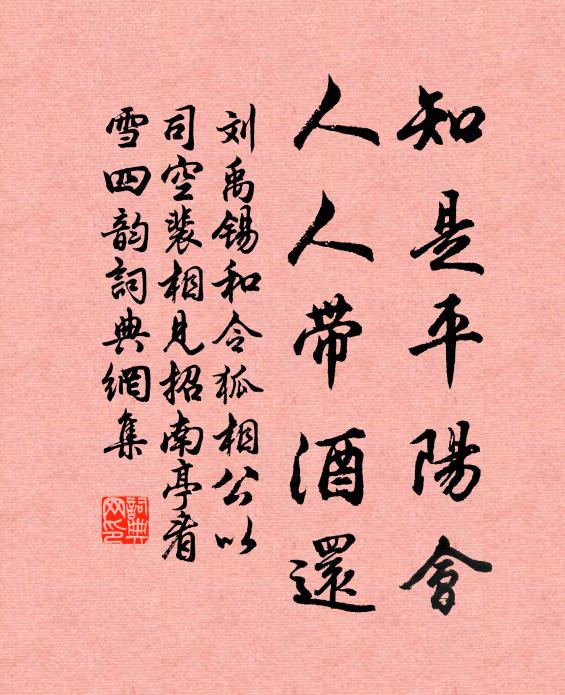 知是平陽會
人人帶酒還
刘禹锡和令狐相公以
司空裴相見招南亭看
雪四韵詞典網集
詞典網印